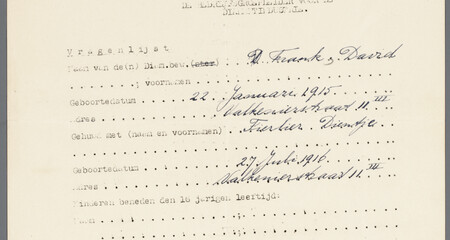 DIENSTVERBAND.
Vragenlijst
Naam van de(n) Dien.bew.(ster) D. Frank, David
; voornamen
Geboortedatum 22 Januari 1915
Adres Valkenierstraat 11 III
Gehuwd met (naam en voornamen) Dientje
Geboortedatum 27 Juli 1916
Adres Valkenierstraat 11 III
Kinderen beneden den 16 jarigen leeftijd:
Naam ;
;